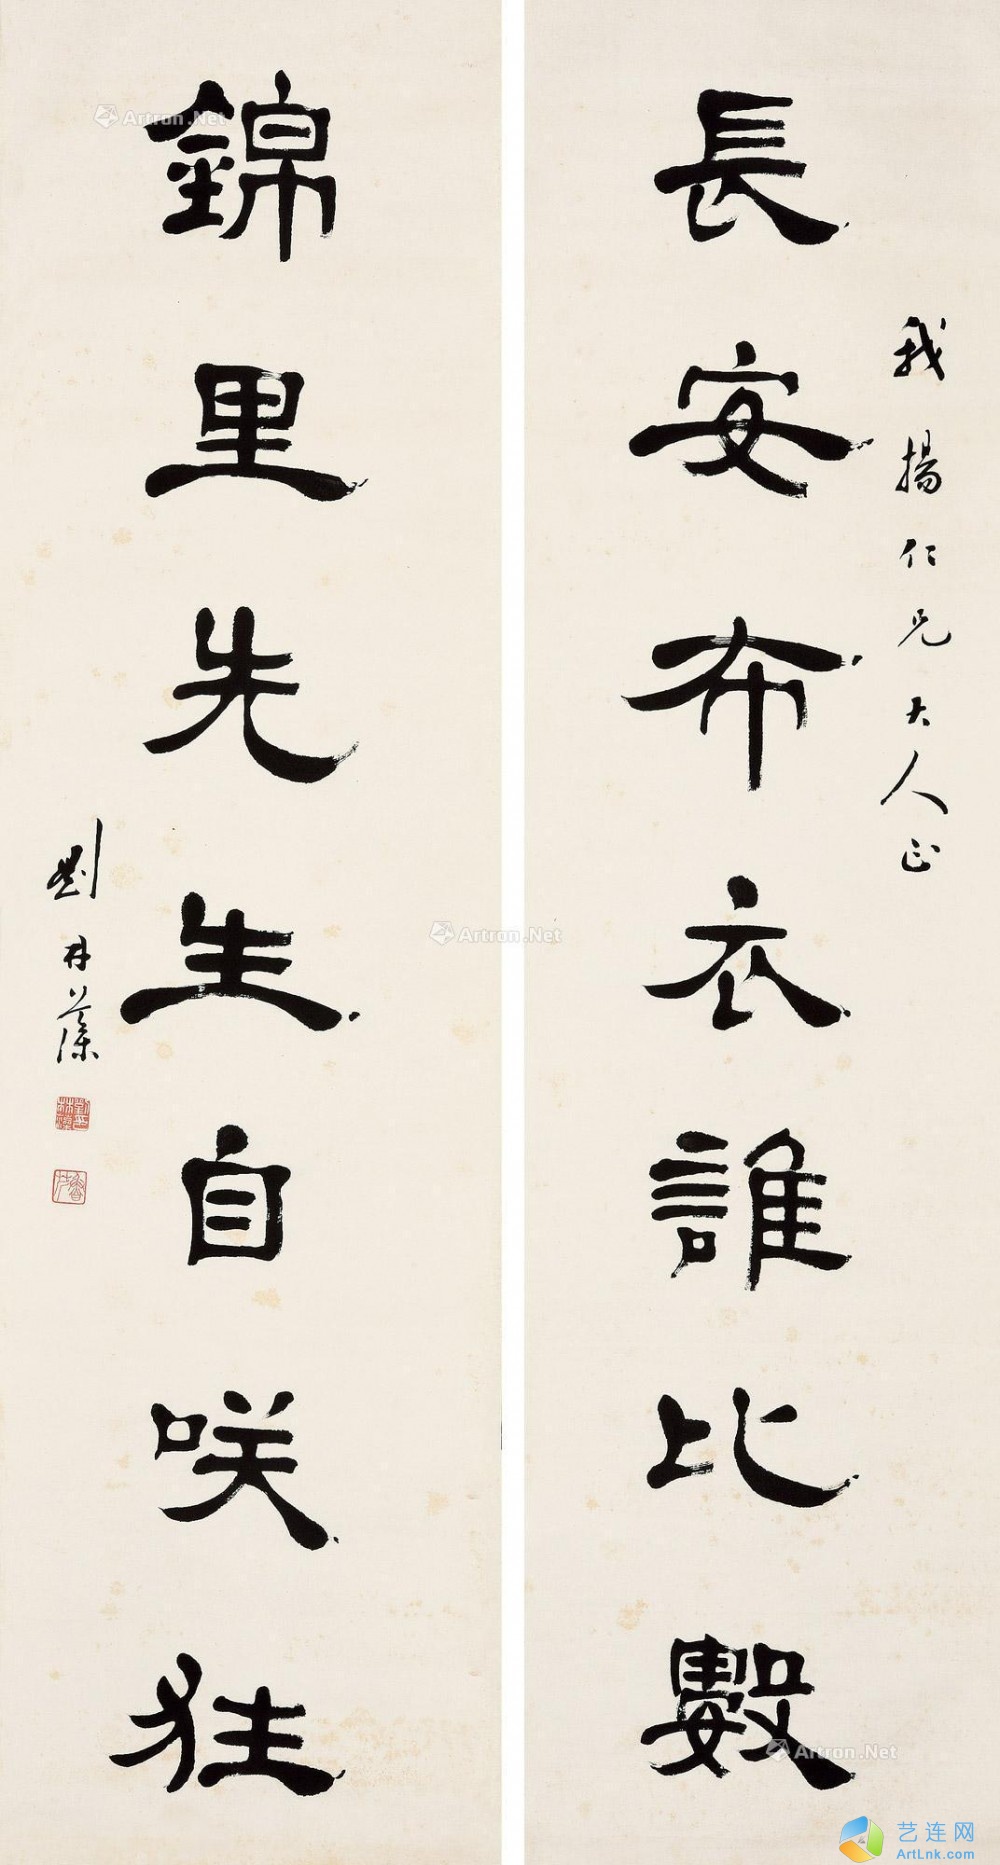 長安布衣誰比數
我揚仁兄大人正
錦里先生自咲狂
劉
Artron.Net
Artron.Net
Artron.Net
艺连网
ArtLnk.com